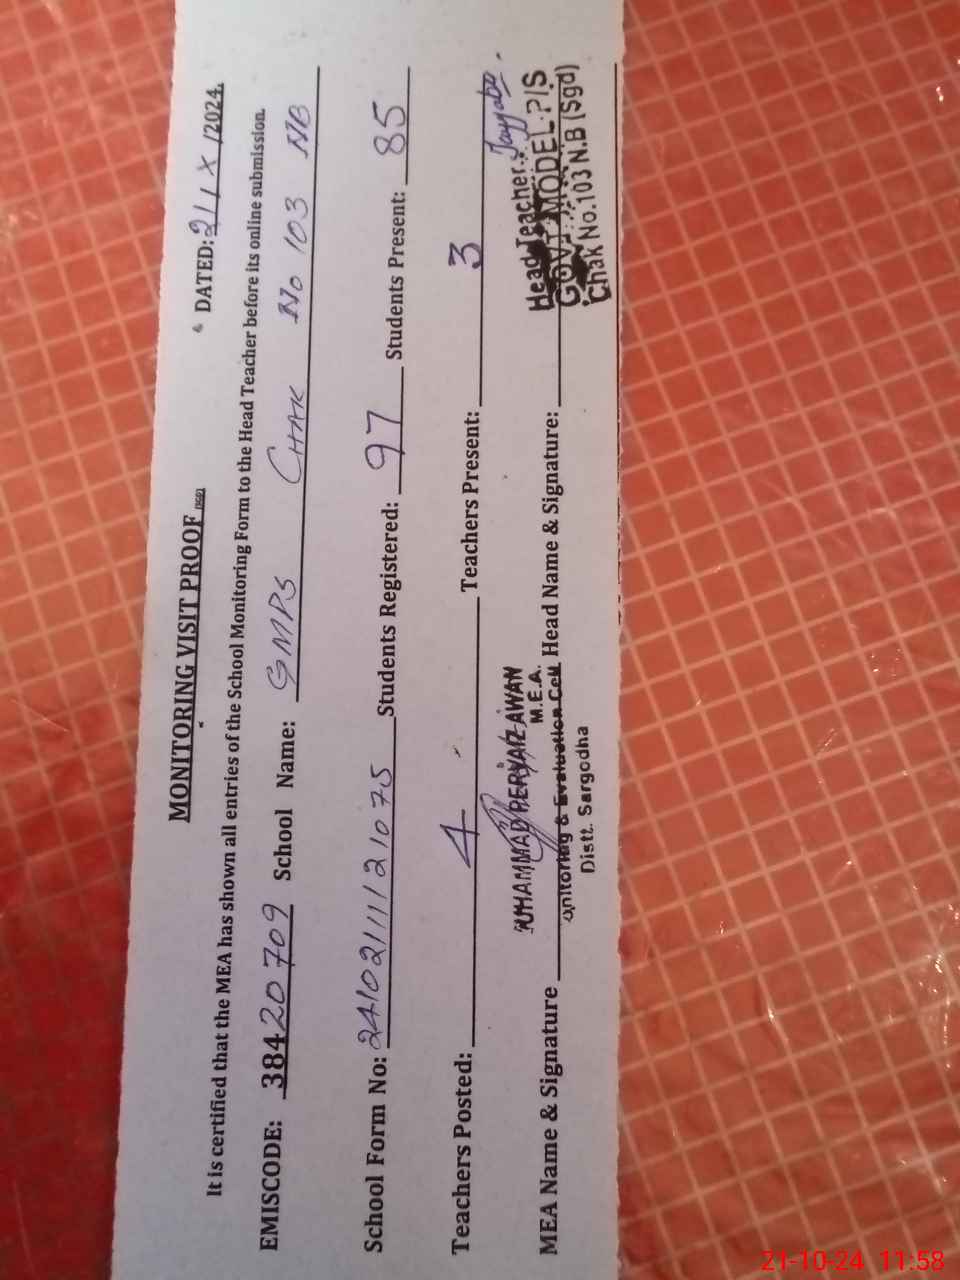 MONITORING VISIT PROOF
DATED: 21/X/2024.
It is certified that the MEA has shown all entries of the School Monitoring Form to the Head Teacher before its online submission.
EMISCODE: 38420709 School Name: GMPS CHAK No 103 NB
School Form No: 241021111121075 Students Registered: 97 Students Present: 85
Teachers Posted: 4 Teachers Present: 3
MUHAMMAD PERVAIZ AWAN
M.E.A.
Monitoring & Evaluation Cell
Distt. Sargodha
MEA Name & Signature Head Name & Signature:
Head Teacher
GOVT. MODEL P/S
Chak No.103 N.B (Sgd)
21-10-24 11:58